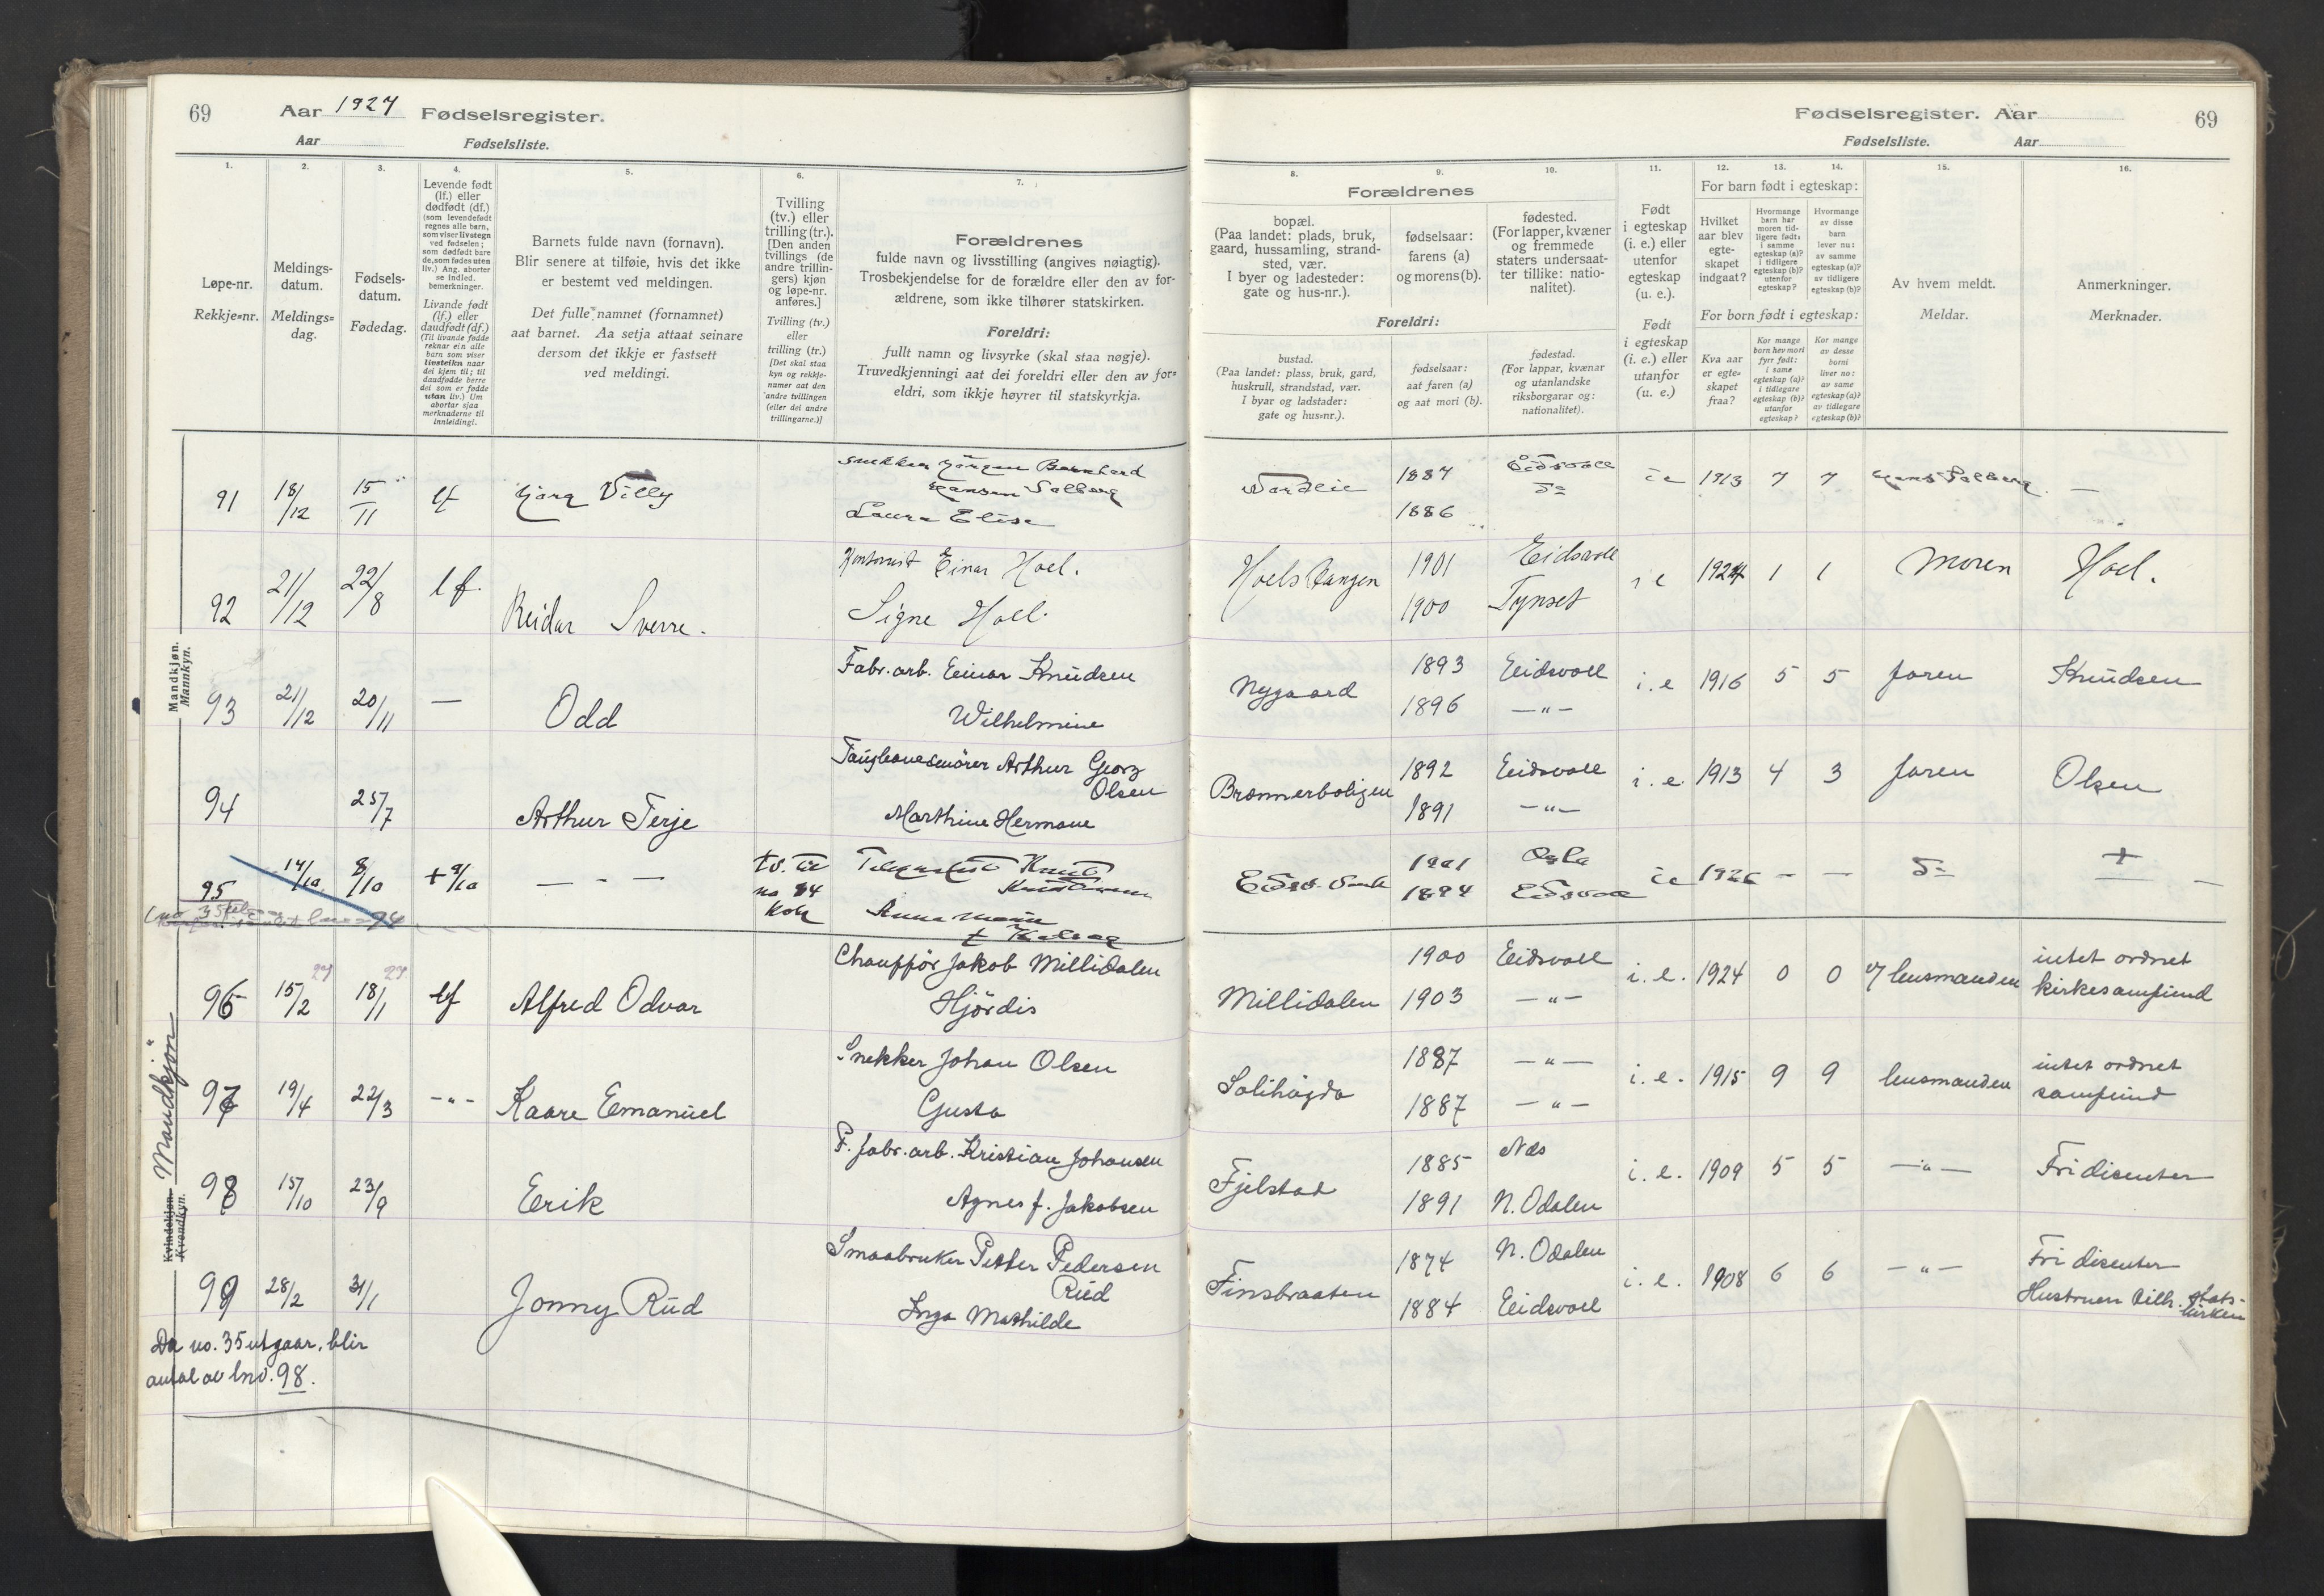 69 Aar 1927 Fødselsregister.
Aar Fødselsliste.
1. 2. 3. 4. 5. 6. 7.
Løpe-nr.
Rekkje=nr.
Meldings-
datum.
Meldings=
dag.
Fødsels-
datum.
Fødedag.
Levende født
(lf.) eller
dødfødt (df.)
(som levendefødt
regnes alle barn,
som viser livstegn
ved fødselen;
som dødfødt bare
de, som fødes uten
liv.) Ang. aborter
se indled.
bemerkninger.
Livande født
(lf.) eller
daudfødt (df.)
(Til livande fødde
reknar ein alle
barn som viser
livsteikn naar
dei kjem til; til
daudfødde berre
dei som er fødde
utan liv.) Um
abortar sjaa
merknaderne til
innleidingi.
Barnets fulde navn (fornavn).
Blir senere at tilføie, hvis det ikke
er bestemt ved meldingen.
Det fulle namnet (fornamnet)
aat barnet. Aa setja attaat seinare
dersom det ikkje er fastsett
ved meldingi.
Tvilling
(tv.) eller
trilling (tr.).
[Den anden
tvillings (de
andre trillin-
gers) kjøn
og løpe-nr.
anføres.]
Tvilling (tv.)
eller
trilling (tr.)
[Det skal staa
kyn og rekkje-
namer aat den
andre tvillingen
(eller dei andre
trillingarne.)]
Forældrenes
fulde navn og livsstilling (angives nøiagtig).
Trosbekjendelse for de forældre eller den av for-
ældrene, som ikke tilhører statskirken.
Foreldri:
fullt namn og livsyrke (skal staa nøgje).
Truvedkjenningi aat dei foreldri eller den av for=
eldri, som ikkje høyrer til statskyrkja.
Mandkjøn.
Mannkyn.
91 18/12 15/11 lf Willy
Hansen Solberg
Laura Elise
92 21/12 22/8 lf. Reidar Sverre.
Kontorist Einar Hoel.
Signe Hoel.
93 21/12 20/11 — Odd
Fabr. arb. Einar Knudsen
Wilhelmine
94 25/7 Arthur Terje
Arthur Georg
Olsen
Marthine Hermane
95 14/10 8/10 + 9/10 — - —
tv. til
no 94
Knut
Anna
Mandkjön
Kvindekjøn.
Kvendkyn.
96 15/2 27 18/1 27 lf Alfred Odvar
Chaufför Jakob Millidalen
Hjördis
97 19/4 22/3 -"- Kaare Emanuel
Snekker Johan Olsen
Gusta
98 15/10 23/9 Erik
F. fabr. arb. Kristian Johansen
Agnes f. Jakobsen
99 28/2 31/1 Jonny Rud
Smaabruker Petter Pedersen
Rud
Inga Mathilde
Da no. 35 utgaar, blir
antal av lnr. 98.
Fødselsregister. Aar 69
Fødselsliste. Aar
8. 9. 10. 11. 12. 13. 14. 15. 16.
Forældrenes
bopæl.
(Paa landet: plads, bruk,
gaard, hussamling, strand-
sted, vær.
I byer og ladesteder:
gate og hus-nr.).
fødselsaar:
farens (a)
og morens (b).
fødested.
(For lapper, kvæner
og fremmede
staters undersaat-
ter tillike: natio-
nalitet).
Foreldri:
bustad.
(Paa landet: plass, bruk, gard,
huskrull, strandstad, vær.
I byar og ladstader:
gate og hus=nr.).
fødselsaar:
aat faren (a)
og aat mori (b).
fødestad.
(For lappar, kvænar
og utanlandske
riksborgarar og:
nationalitet).
Født
i egteskap
(i. e.) eller
utenfor
egteskap
(u. e.).
Født
i egteskap
(i. e.) eller
utanfor
(u. e.)
For barn født i egteskap:
Hvilket
aar blev
egte-
skapet
indgaat?
Hvormange
barn har
moren tid-
ligere født:
i samme
egteskap (a)?
i tidligere
egteskap (b)?
utenfor
egteskap?
Hvormange
av disse
barn
lever nu:
av samme
egteskap (a)?
av tidligere
egteskap (b)?
For born født i egteskap:
Kva aar
er egte=
skapet
fraa?
Kor mange
born hev mori
fyrr født:
i same
egteskap (a)?
i tidlegare
egteskap (b)?
utanfor
egteskap?
Kor mange
av desse
borni
liver no:
av same
egteskap (a)?
av tidlegare
egteskap (b)?
Av hvem meldt.
Meldar.
Anmerkninger.
Merknader.
1887 Eidsvoll 1913 7 7 —
1886
1901 Eidsvoll i e 1924 1 1 Moren Hoel.
1900 Tynset
Nygaard 1893 Eidsvoll i. e 1916 5 5 faren Knudsen
1896 —"—
Brænnerboligen 1892 Eidsvoll i. e 1913 4 3 faren Olsen
1891 —"—
1901 Oslo 1926 — — +
1894 Eidsvoll
Millidalen 1900 Eidsvoll i. e. 1924 0 0 lensmanden intet ordnet
1903 —"— kirkesamfund
Solihøgda 1887 —"— i. e. 1915 9 9 lensmanden intet ordnet
1887 —"— samfund
Fjelstad 1885 Næs i. e. 1909 5 5 —"— Fri disenter
1891 N. Odalen
Finsbraaten 1874 N. Odalen i. e. 1908 6 6 —"— Fri disenter
1884 Eidsvoll Hustruen tilh. stats-
kirken